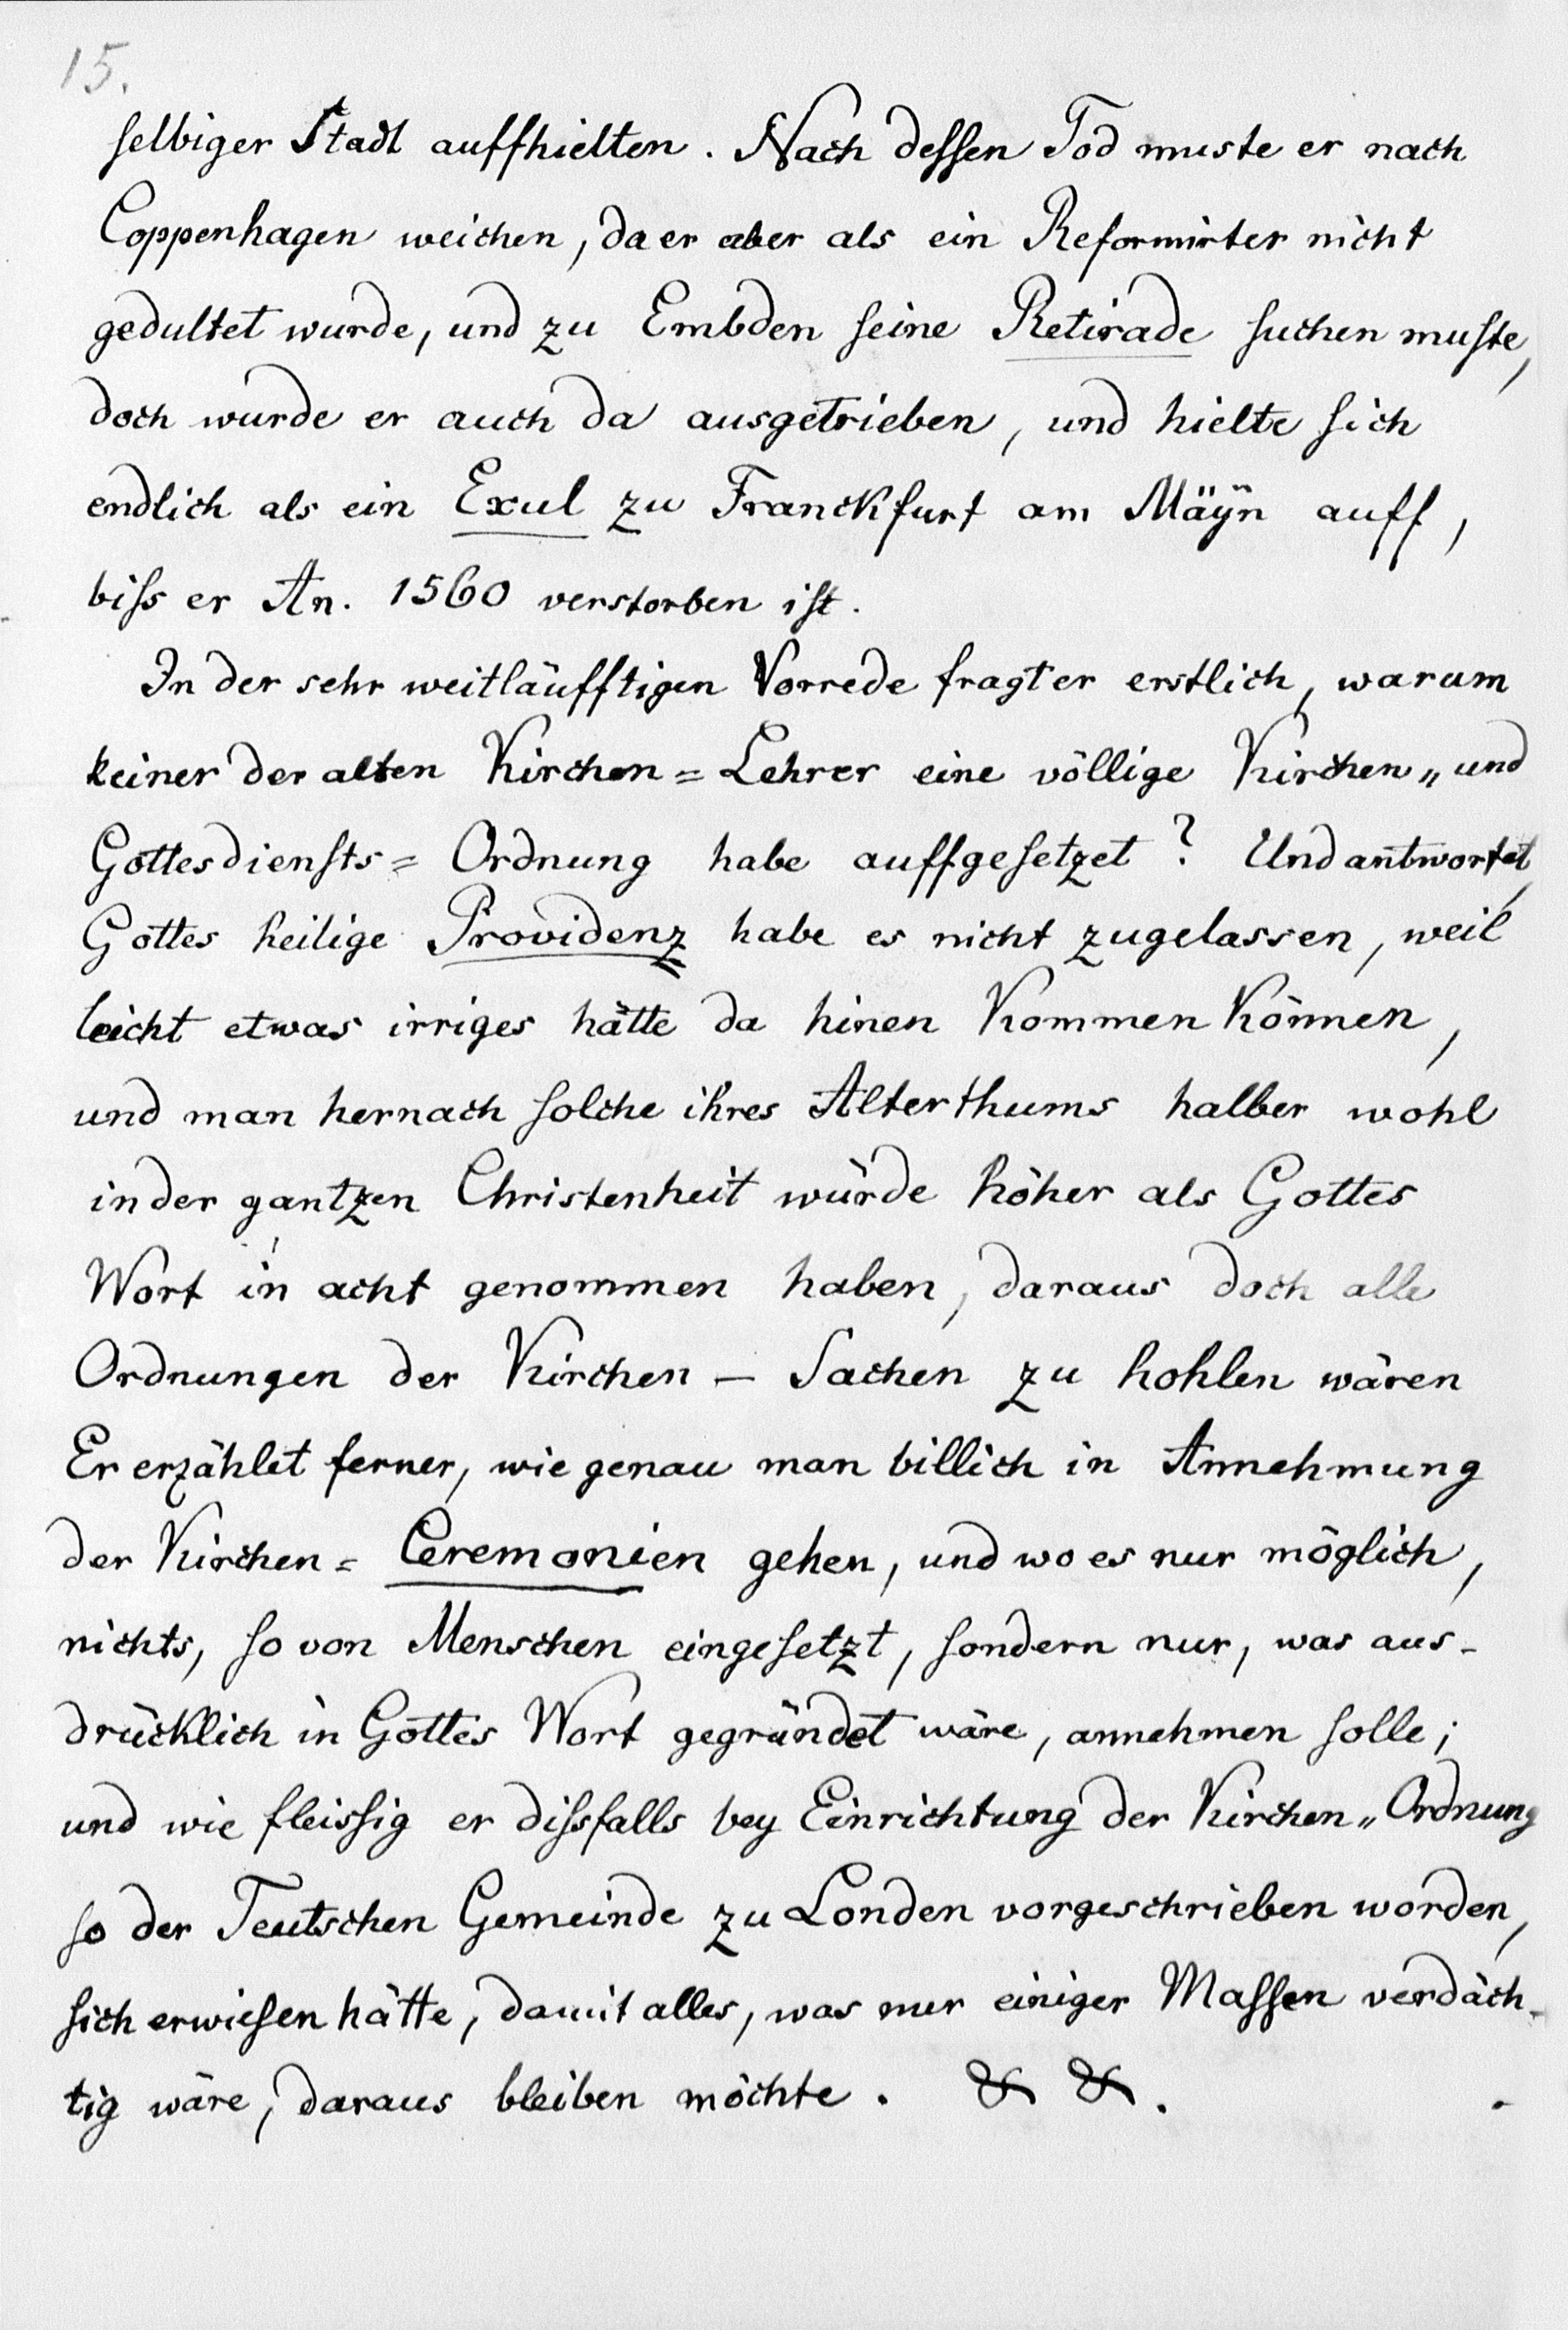 15.
selbiger Stadt auffhielten. Nach dessen Tod muste er nach
Coppenhagen weichen, da er aber als ein Reformirter nicht
gedultet wurde, und zu Embden seine Retirade suchen muste,
doch wurde er auch da ausgetrieben, und hielte sich
endlich als ein Exul zu Franckfurt am Mäÿn auff,
biss er An. 1560 verstorben ist.
In der sehr weitläufftigen Vorrede fragt er erstlich, warum
keiner der alten Kirchen = Lehrer eine völlige Kirchen „ und
Gottesdiensts = Ordnung habe auffgesetzet? Und antwortet,
Gottes heilige Providenz habe es nicht zugelassen, weil
leicht etwas irriges hätte da hinen kommen können,
und man hernach solche ihres Alterthums halber wohl
in der gantzen Christenheit würde höher als Gottes
Wort in acht genommen haben, daraus doch alle
Ordnungen der Kirchen – Sachen zu hohlen wären
Er erzählet ferner, wie genau man billich in Annehmung
der Kirchen = Ceremonien gehen, und wo es nur möglich,
nichts, so von Menschen eingesetzt, sondern nur, was aus-
drücklich in Gottes Wort gegründet wäre, annehmen solle;
und wie fleissig er dissfalls bey Einrichtung der Kirchen „ Ordnung
so der Teutschen Gemeinde zu Londen vorgeschrieben worden,
sich erwiesen hätte, damit alles, was nur einiger Massen verdäch-
tig wäre, daraus bleiben möchte. & &.